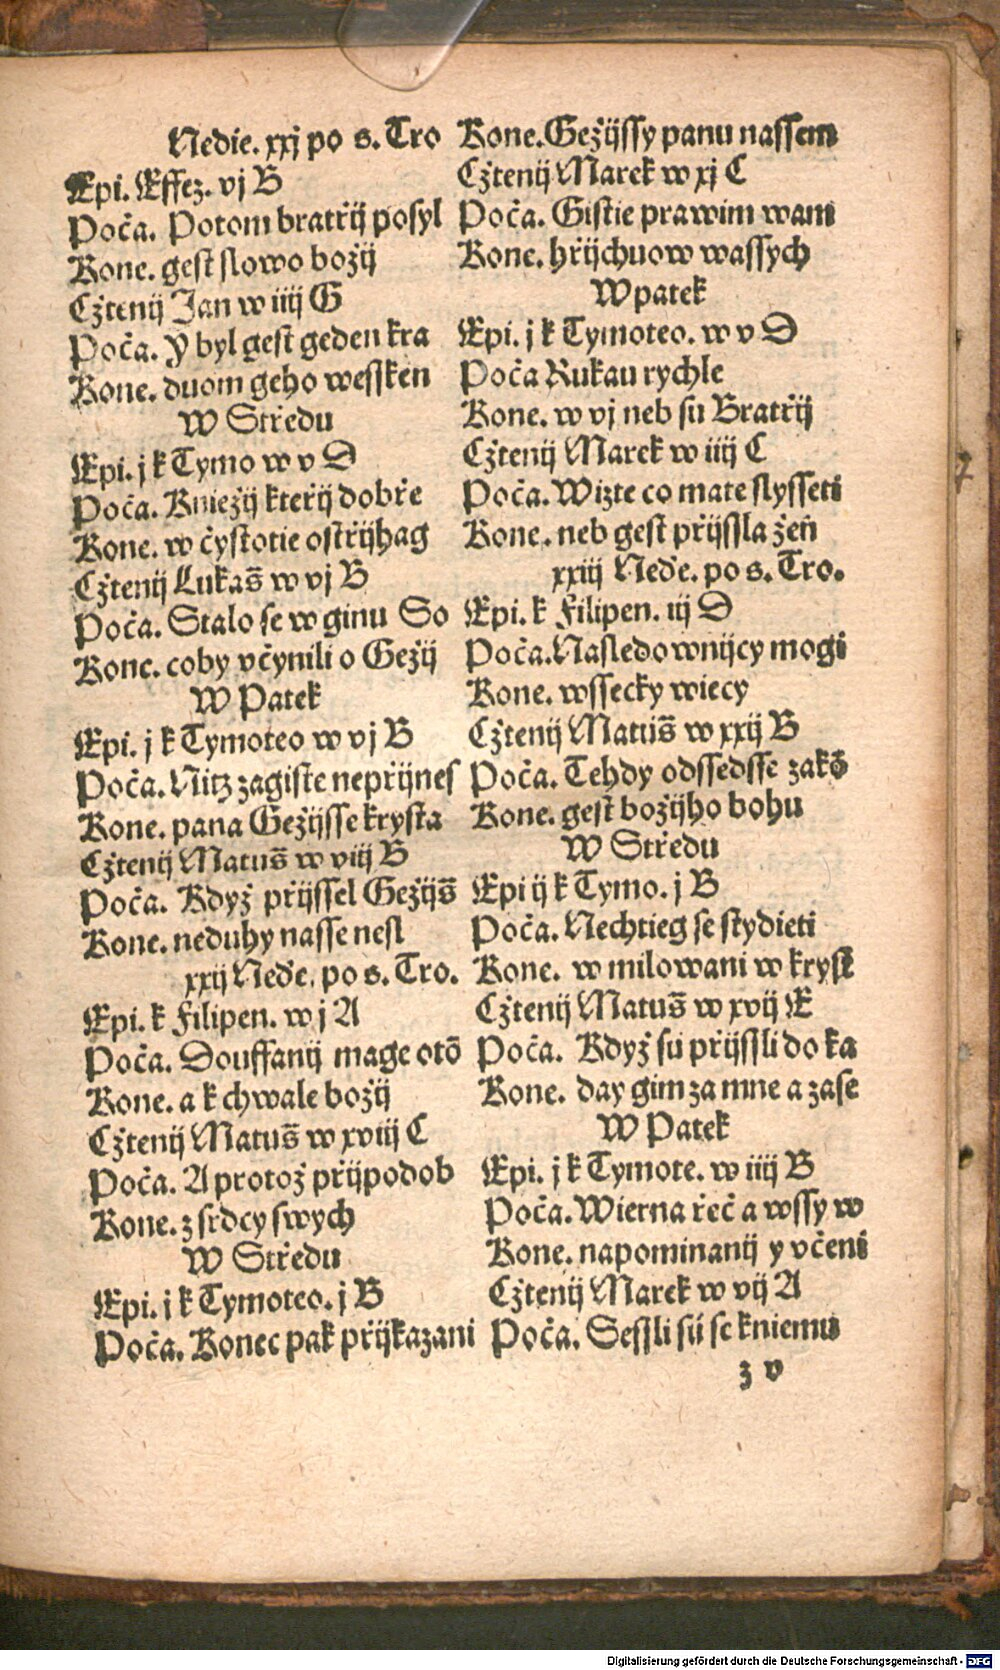 Nedie. xxj po s. Tro
Epi. Effez. vj B
Poča. Potom bratřij posyl
Kone. gest slowo božij
Cžtenij Jan w iiij G
Poča. Y byl gest geden kra
Kone. duom geho wessken
W Středu
Epi. j k Tymo w v D
Poča. Kniežij kteřij dobře
Kone. w čystotie ostřijhag
Cžtenij Lukas̃ w vj B
Poča. Stalo se w ginu So
Kone. coby včynili o Gežij
W Patek
Epi. j k Tymoteo w vj B
Poča. Nitz zagiste nepřijnes
Kone. pana Gežijsse krysta
Cžtenij Matus̃ w viij B
Poča. Když přijssel Gežijs̃
Kone. neduhy nasse nesl
xxij Neďe. po s. Tro.
Epi. k Filipen. w j A
Poča. Douffanij mage otõ
Kone. a k chwale božij
Cžtenij Matus̃ w xviij C
Poča. A protož přijpodob
Kone. z srdcy swych
W Středu
Epi. j k Tymoteo. j B
Poča. Konec pak přijkazani
Kone. Gežijssy panu nassem
Cžtenij Marek w xj C
Poča. Gistie prawim wam
Kone. hřijchuow wassych
W patek
Epi. j k Tymoteo. w v D
Poča Rukau rychle
Kone. w vj neb su Bratřij
Cžtenij Marek w iiij C
Poča. Wizte co mate slysseti
Kone. neb gest přijssla žeň
xxiij Neďe. po s. Tro.
Epi. k Filipen. iij D
Poča. Nasledownijcy mogi
Kone. wssecky wiecy
Cžtenij Matus̃ w xxij B
Poča. Tehdy odssedsse zakõ
Kone. gest božijho bohu
W Středu
Epi ij k Tymo. j B
Poča. Nechtieg se stydieti
Kone. w milowani w kryst̃
Cžtenij Matus̃ w xvij E
Poča. Když su přijssli do ka
Kone. day gim za mne a za se
W Patek
Epi. j k Tymote. w iiij B
Poča. Wierna řeč a wssy w
Kone. napominanij y včeni
Cžtenij Marek w vij A
Poča. Sessli su se kniemu
z v
Digitalisierung gefördert durch die Deutsche Forschungsgemeinschaft - DFG